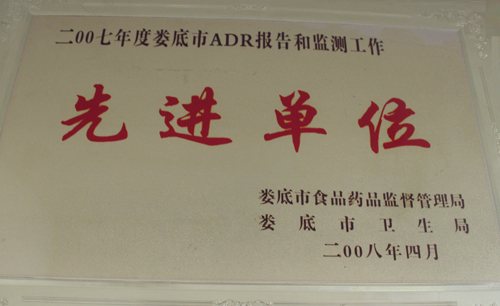 二00七年度娄底市ADR报告和监测工作
先进单位
娄底市食品药品监督管理局
娄底市卫生局
二00八年四月